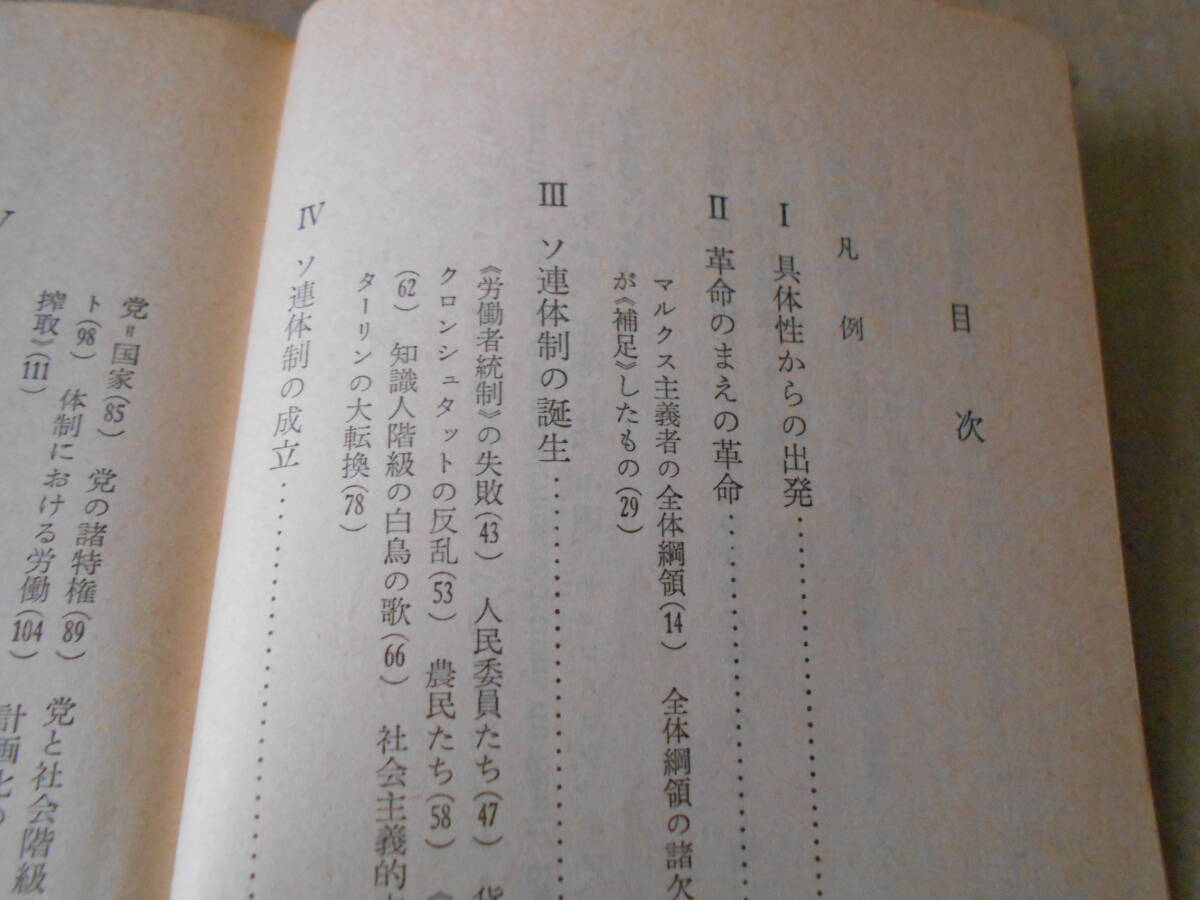 目次
凡例
Ⅰ 具体性からの出発……………
Ⅱ 革命のまえの革命……………
マルクス主義者の全体綱領(14) 全体綱領の諸欠
が《補足》したもの(29)
Ⅲ ソ連体制の誕生……………
《労働者統制》の失敗(43) 人民委員たち(47) 貨
クロンシュタットの反乱(53) 農民たち(58) 《
(62) 知識人階級の白鳥の歌(66) 社会主義的
ターリンの大転換(78)
Ⅳ ソ連体制の成立……………
党＝国家(85) 党の諸特権(89) 党と社会階級
ト(98) 体制における労働(104) 計画化の
搾取》(111)
V